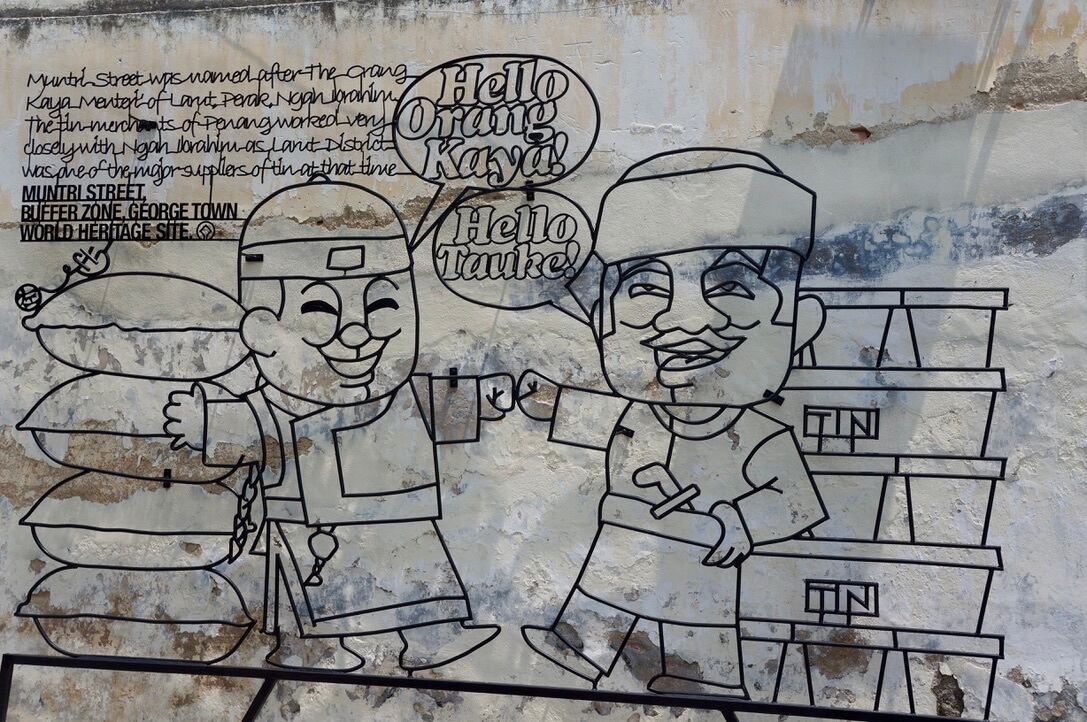 Muntri Street was named after The Orang
Kaya Menteri of Larut, Perak, Ngah Ibrahim.
The tin merchants of Penang worked very
closely with Ngah Ibrahim as Larut District
was one of the major suppliers of tin at that time
MUNTRI STREET,
BUFFER ZONE, GEORGE TOWN
WORLD HERITAGE SITE.
Hello
Orang
Kaya!
Hello
Tauke!
TIN
TIN